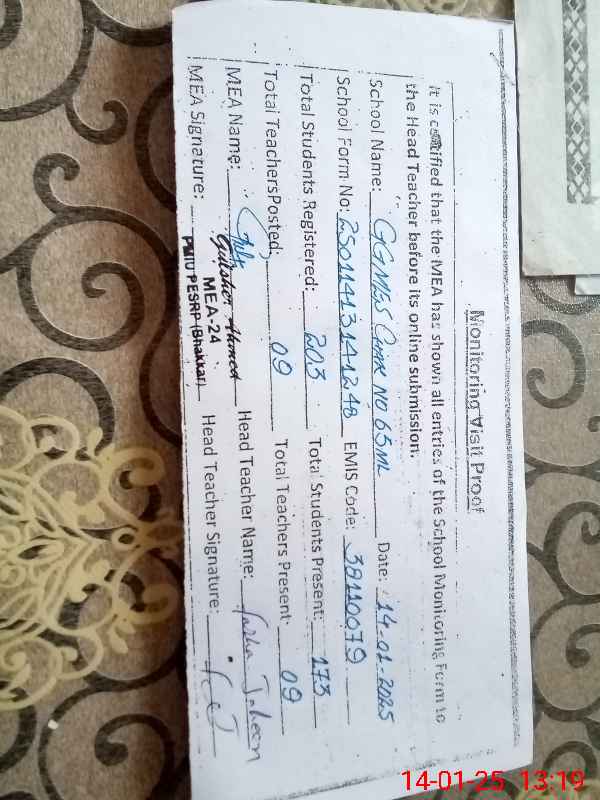 Monitoring Visit Proof
It is certified that the MEA has shown all entries of the School Monitoring Form to
the Head Teacher before its online submission.
School Name: GGMES CHAK NO 65 ML Date: 14-01-2025
School Form No: 25011413141248 EMIS Code: 38110079
Total Students Registered: 203 Total Students Present: 173
Total TeachersPosted: 09 Total Teachers Present: 09
MEA Name: Gulsher Ahmed Head Teacher Name:
MEA-24
MEA Signature: PMIU PESRP (Bhakkar) Head Teacher Signature:
14-01-25 13:19